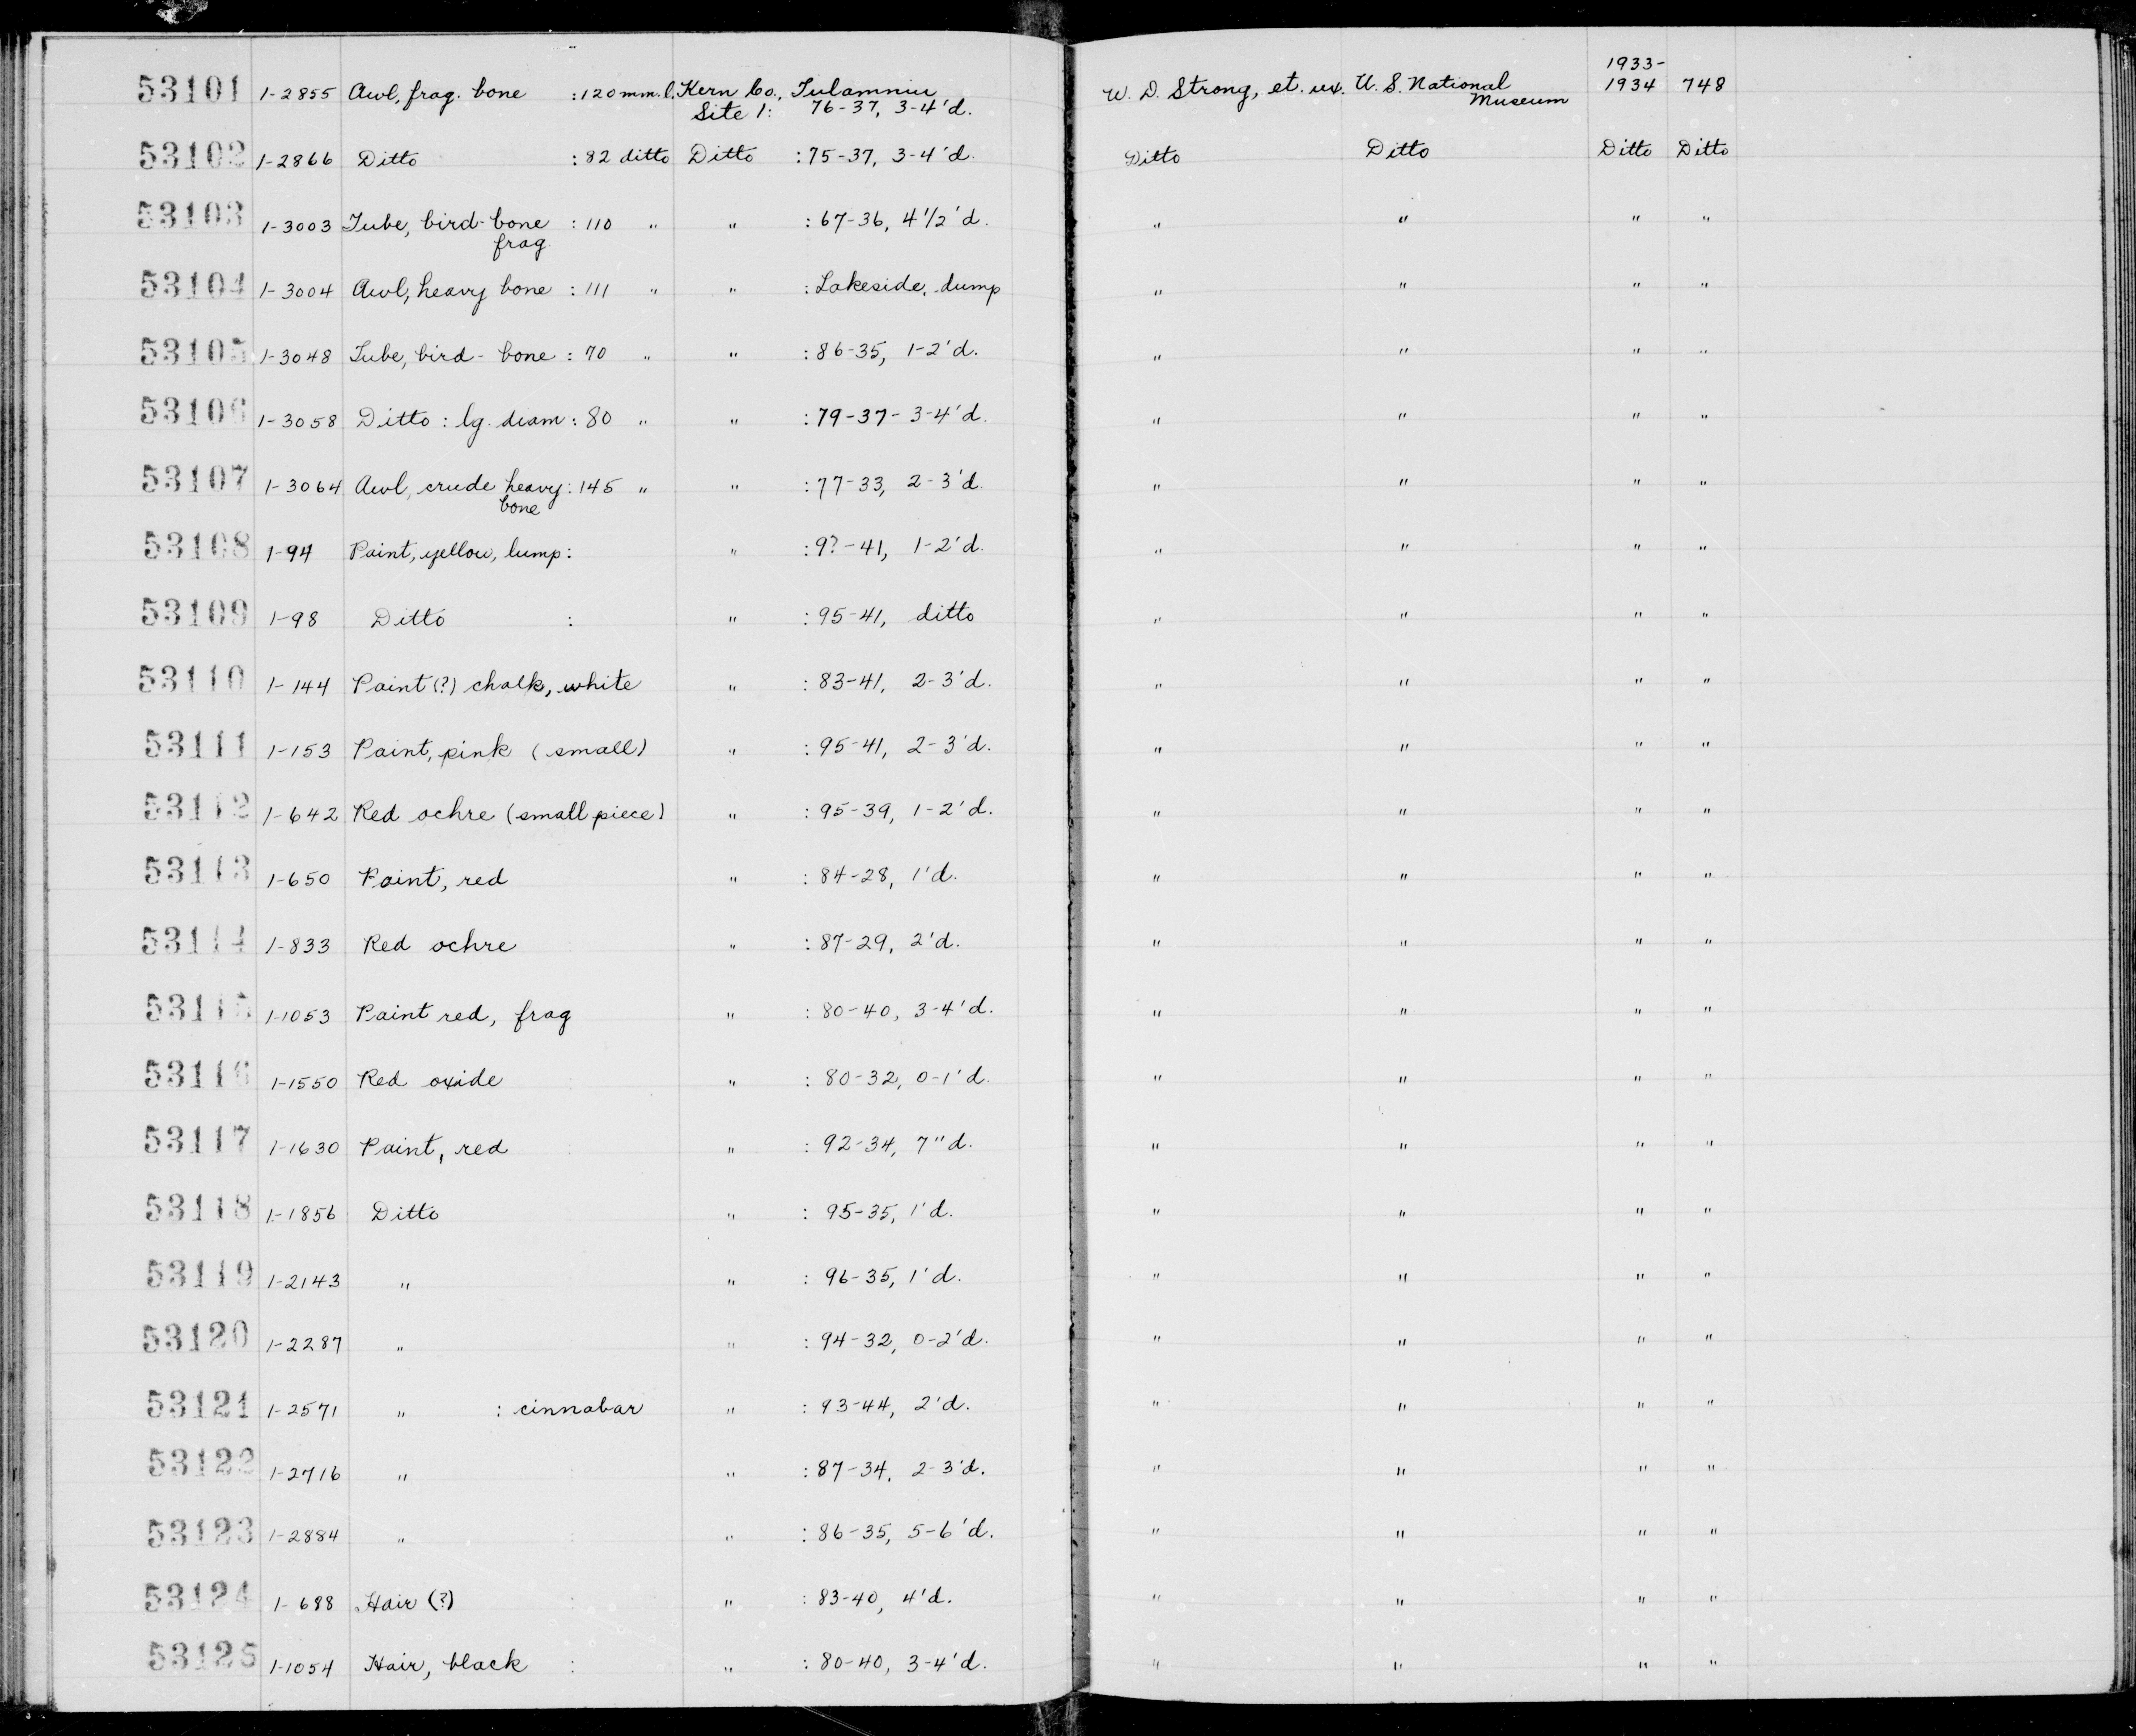 1933-
53101 1-2855 Awl, frag. bone : 120 mm. l. Kern Co., Tulamniu W. D. Strong, et. ux. U. S. National 1934 748
Site 1: 76-37, 3-4'd. Museum
53102 1-2866 Ditto : 82 ditto Ditto : 75-37, 3-4'd. Ditto Ditto Ditto Ditto
53103 1-3003 Tube, bird-bone : 110 " " : 67-36, 4 1/2'd. " " " "
frag.
53104 1-3004 Awl, heavy bone : 111 " " : Lakeside, dump " " " "
53105 1-3048 Tube, bird-bone : 70 " " : 86-35, 1-2'd. " " " "
53106 1-3058 Ditto : lg. diam : 80 " " : 79-37- 3-4'd. " " " "
53107 1-3064 Awl, crude heavy : 145 " " : 77-33, 2-3'd. " " " "
bone
53108 1-94 Paint, yellow, lump : " : 9?-41, 1-2'd. " " " "
53109 1-98 Ditto : " : 95-41, ditto " " " "
53110 1-144 Paint (?) chalk, white " : 83-41, 2-3'd. " " " "
53111 1-153 Paint, pink (small) " : 95-41, 2-3'd. " " " "
53112 1-642 Red ochre (small piece) " : 95-39, 1-2'd. " " " "
53113 1-650 Paint, red " : 84-28, 1'd. " " " "
53114 1-833 Red ochre " : 87-29, 2'd. " " " "
53115 1-1053 Paint red, frag " : 80-40, 3-4'd. " " " "
53116 1-1550 Red oxide " : 80-32, 0-1'd. " " " "
53117 1-1630 Paint, red " : 92-34, 7"d. " " " "
53118 1-1856 Ditto " : 95-35, 1'd. " " " "
53119 1-2143 " " : 96-35, 1'd. " " " "
53120 1-2287 " " : 94-32, 0-2'd. " " " "
53121 1-2571 " : cinnabar " : 93-44, 2'd. " " " "
53122 1-2716 " " : 87-34, 2-3'd. " " " "
53123 1-2884 " " : 86-35, 5-6'd. " " " "
53124 1-688 Hair (?) " : 83-40, 4'd. " " " "
53125 1-1054 Hair, black : " : 80-40, 3-4'd. " " " "